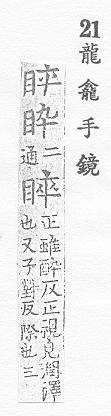 21龍龕手鏡
睟二
通
睟正雖醉反正視皃潤澤
也又子對反際也三